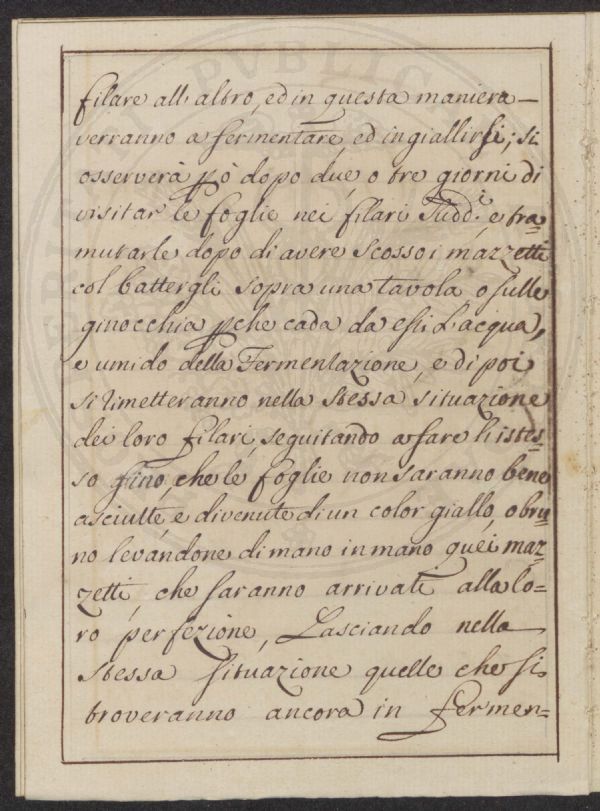 filare all'altro, ed in questa maniera
verranno a fermentare, ed ingiallirsi; si
osserverà pò dopo due, o tre giorni di
visitar le foglie nei filari Sudd.i e tra=
mutarle dopo di avere scosso i mazzetti
col battergli sopra una tavola, o sulle
ginocchia pche cada da essi l'acqua,
e umido della Fermentazione, e di poi
si rimetteranno nella stessa situazione
dei loro filari, seguitando a fare l'istes=
so fino, che le foglie non saranno bene
asciutte e divenute di un color giallo, o bru=
no levandone di mano in mano quei maz=
zetti, che saranno arrivati alla lo=
ro perfezione, Lasciando nella
stessa situazione quelle che si
troveranno ancora in fermen=